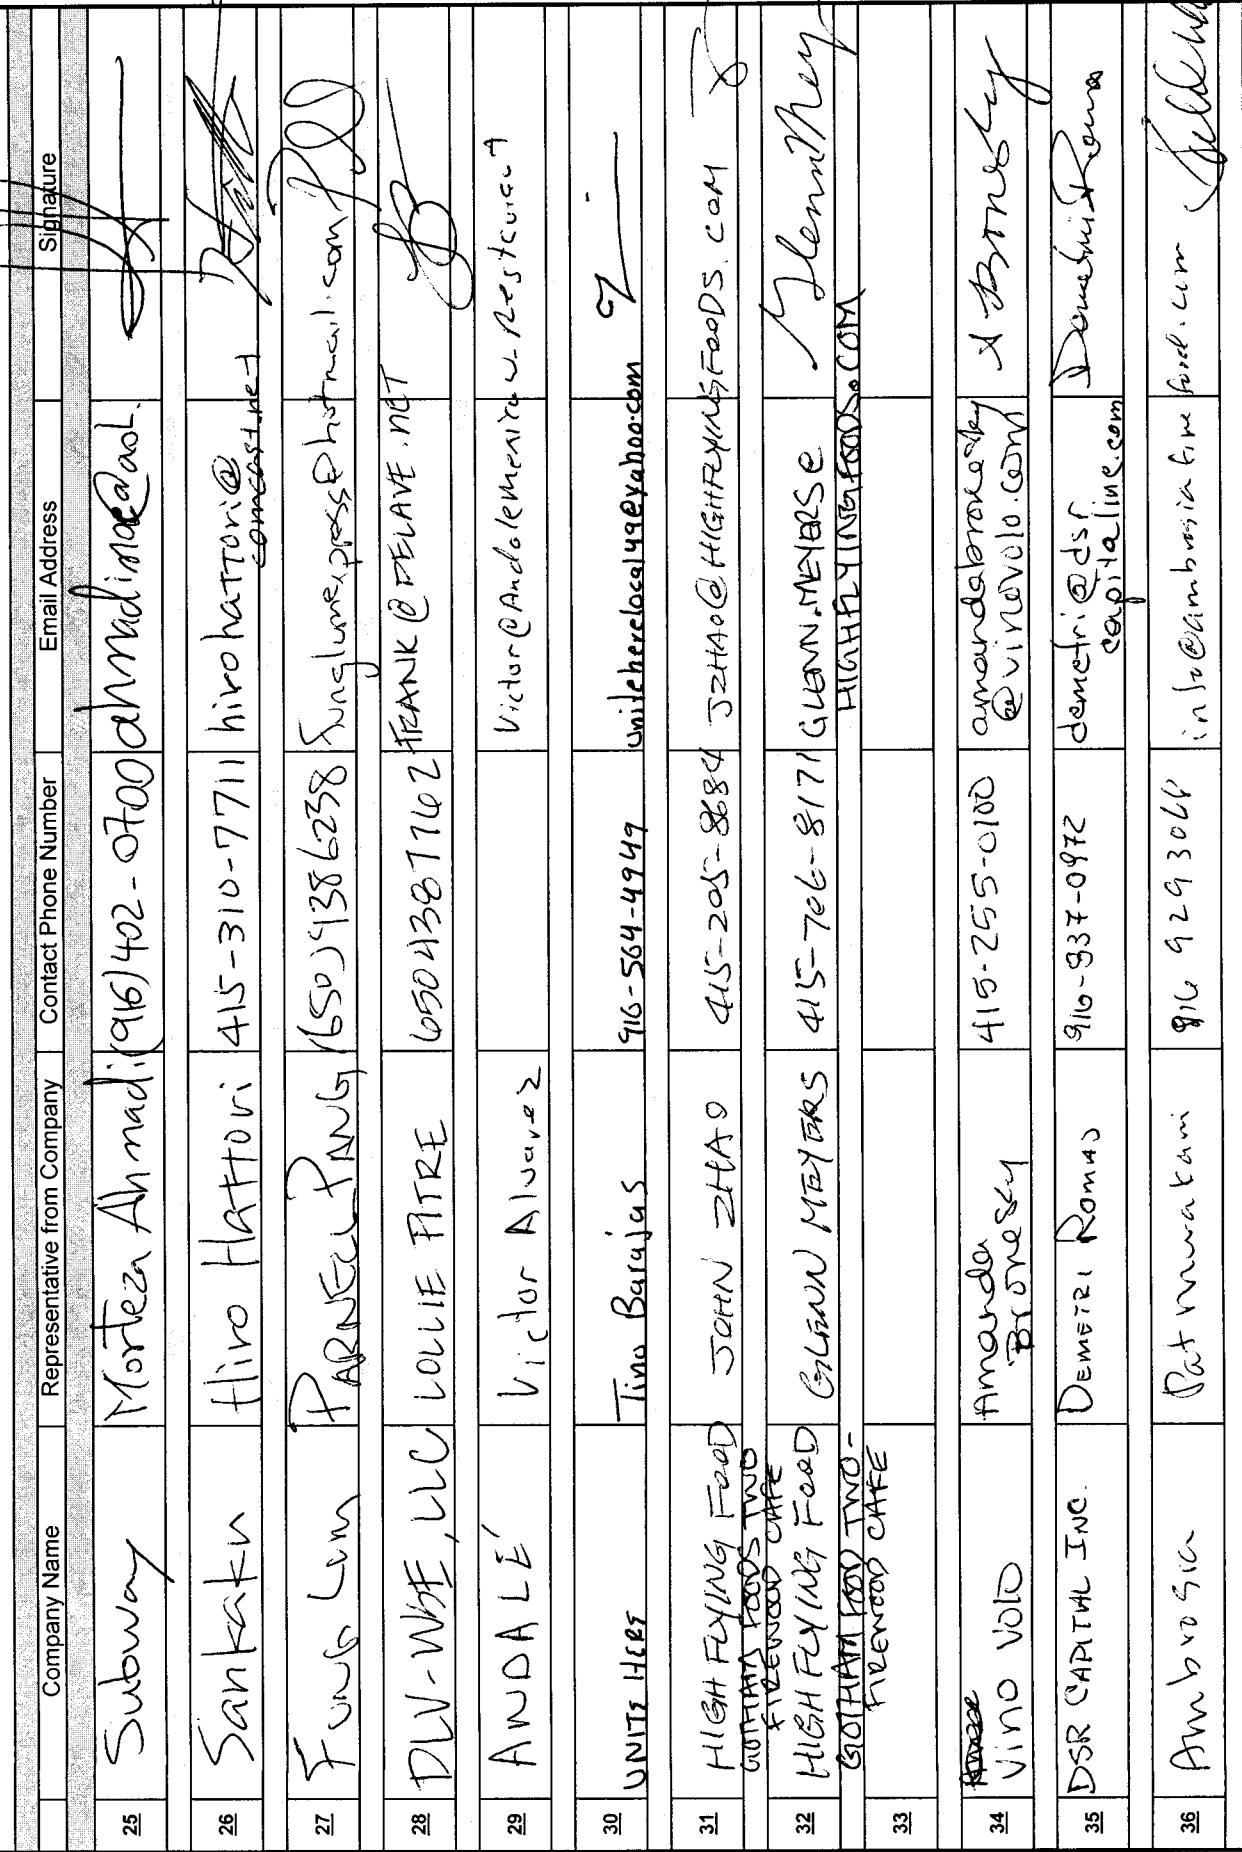 Company Name Representative from Company Contact Phone Number Email Address Signature
25 Subway Morteza Ahmadi (916) 402-0700 ahmadimo@aol.
26 Sankaku Hiro Hattori 415-310-7711 hirohattori@
comcast.net
27 Fung Lum PARNELL PANG (650) 9386238 funglumexpress@hotmail.com
28 DLV-WBE, LLC LOLLIE FITRE 6504387762 FRANK@DELAVE.NET
29 ANDALÉ Victor Alvarez Victor@Andalemexican-Restaurant
30 UNITE HERE Tino Barajas 916-564-4949 uniteherelocal49@yahoo.com
31 HIGH FLYING FOOD JOHN ZHAO 415-205-8684 JZHAO@HIGHFLYINGFOODS.COM
GOTHAM FOODS TWO
FIREWOOD CAFE
32 HIGH FLYING FOOD GLENN MEYERS 415-706-8171 GLENN.MEYERS@
HIGHFLYINGFOODS.COM
GOTHAM FOOD TWO-
FIREWOOD CAFE
33
34 Vino Volo Amanda
Bronesky 415-255-0100 amandabronesky
@vinovolo.com
35 DSR CAPITAL INC. DEMETRI ROMAS 916-937-0972 demetri@dsr
capitaline.com
36 Ambrosia Pat Murakami 916 929 3068 info@ambrosiafinefood.com